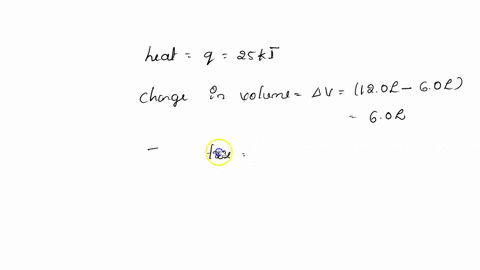 heat = q = 25kJ
Change in volume = ΔV = (12.0L - 6.0L)
= 6.0L
- =